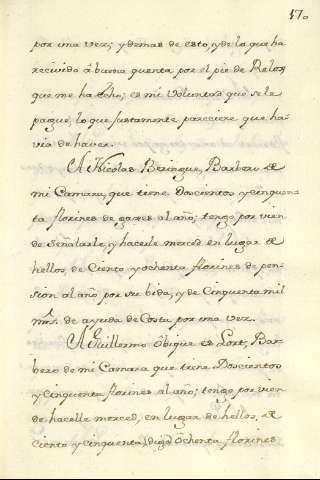 17.
por una vez; y demas de esto, y de lo que ha
recivido â buena quenta por el pie de Relox,
que me ha hecho; es mi voluntad que se le
pague, lo que justamente pareciere que ha-
via de haver.
A Nicolas Beringue, Barbero de
mi Camara, que tiene Doscientos y cinquen-
ta florines de gages al año; tengo por vien
de Señalarle, y hacerle merced en lugar de
hellos, de Ciento y ochenta florines de pen-
sion al año por su bida, y de Cinquenta mil
mrs. de ayuda de Costa por una vez.
A Guillermo Obique es Lort, Bar-
bero de mi Camara que tiene Doscientos
y cinquenta florines al año; tengo por vien
de hacelle merced, en lugar de hellos, de
ciento y cinquenta, digo Ochenta florines